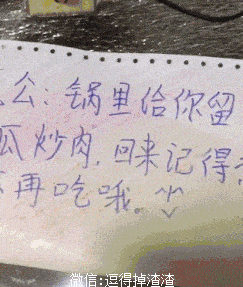 公：锅里给你留
瓜炒肉，回来记得
再吃哦。
微信：逗得掉渣渣